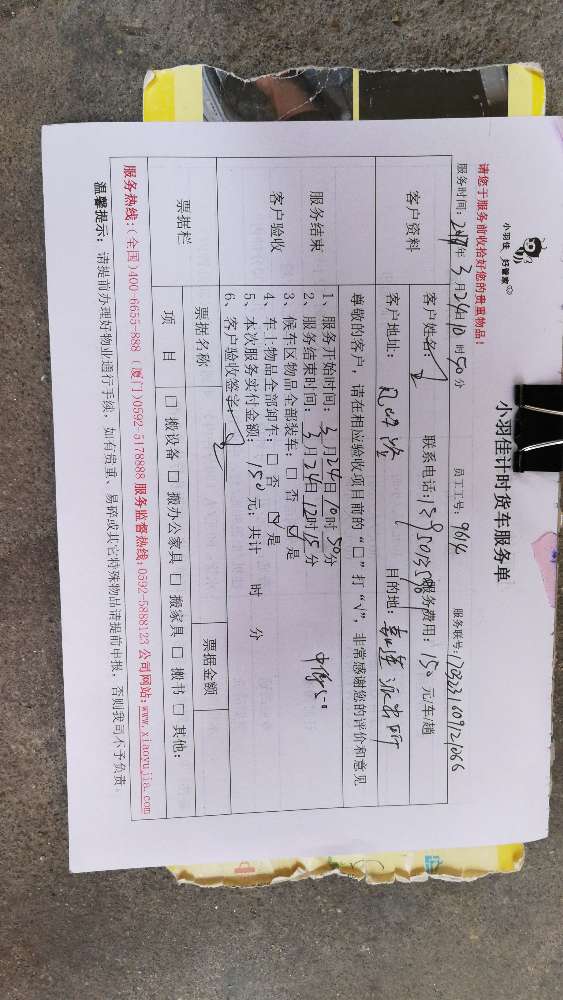 小羽佳 好管家
小羽佳计时货车服务单
请您于服务前收拾好您的贵重物品!
服务时间: 年 3 月 24 日 10 时 50 分 员工工号: 9614 服务账号:
客户资料
客户姓名: 王 联系电话: 服务费用: 150 元/车/趟
客户地址: 目的地: 派出所
尊敬的客户,请在相应验收项目前的“□”打“√”,非常感谢您的评价和意见
服务结束
客户验收
1、服务开始时间: 3 月 24 日 10 时 50 分
2、服务结束时间: 3 月 24 日 12 时 15 分
3、候车区物品全部装车:□ 否 ☑ 是
4、车上物品全部卸车:□ 否 ☑ 是
5、本次服务实付金额: 150 元,共计 时 分
6、客户验收签字: 王
票据栏
票据名称 票据金额
项 目 □ 搬设备 □ 搬办公家具 □ 搬家具 □ 搬书 □ 其他:
服务热线:(全国)400-6655-888 (厦门)0592-5178888 服务监督热线:0592-5888123 公司网站:www.xiaoyujia.com
温馨提示:请提前办理好物业通行手续,如有贵重、易碎或其它特殊物品请提前申报,否则我司不予负责。